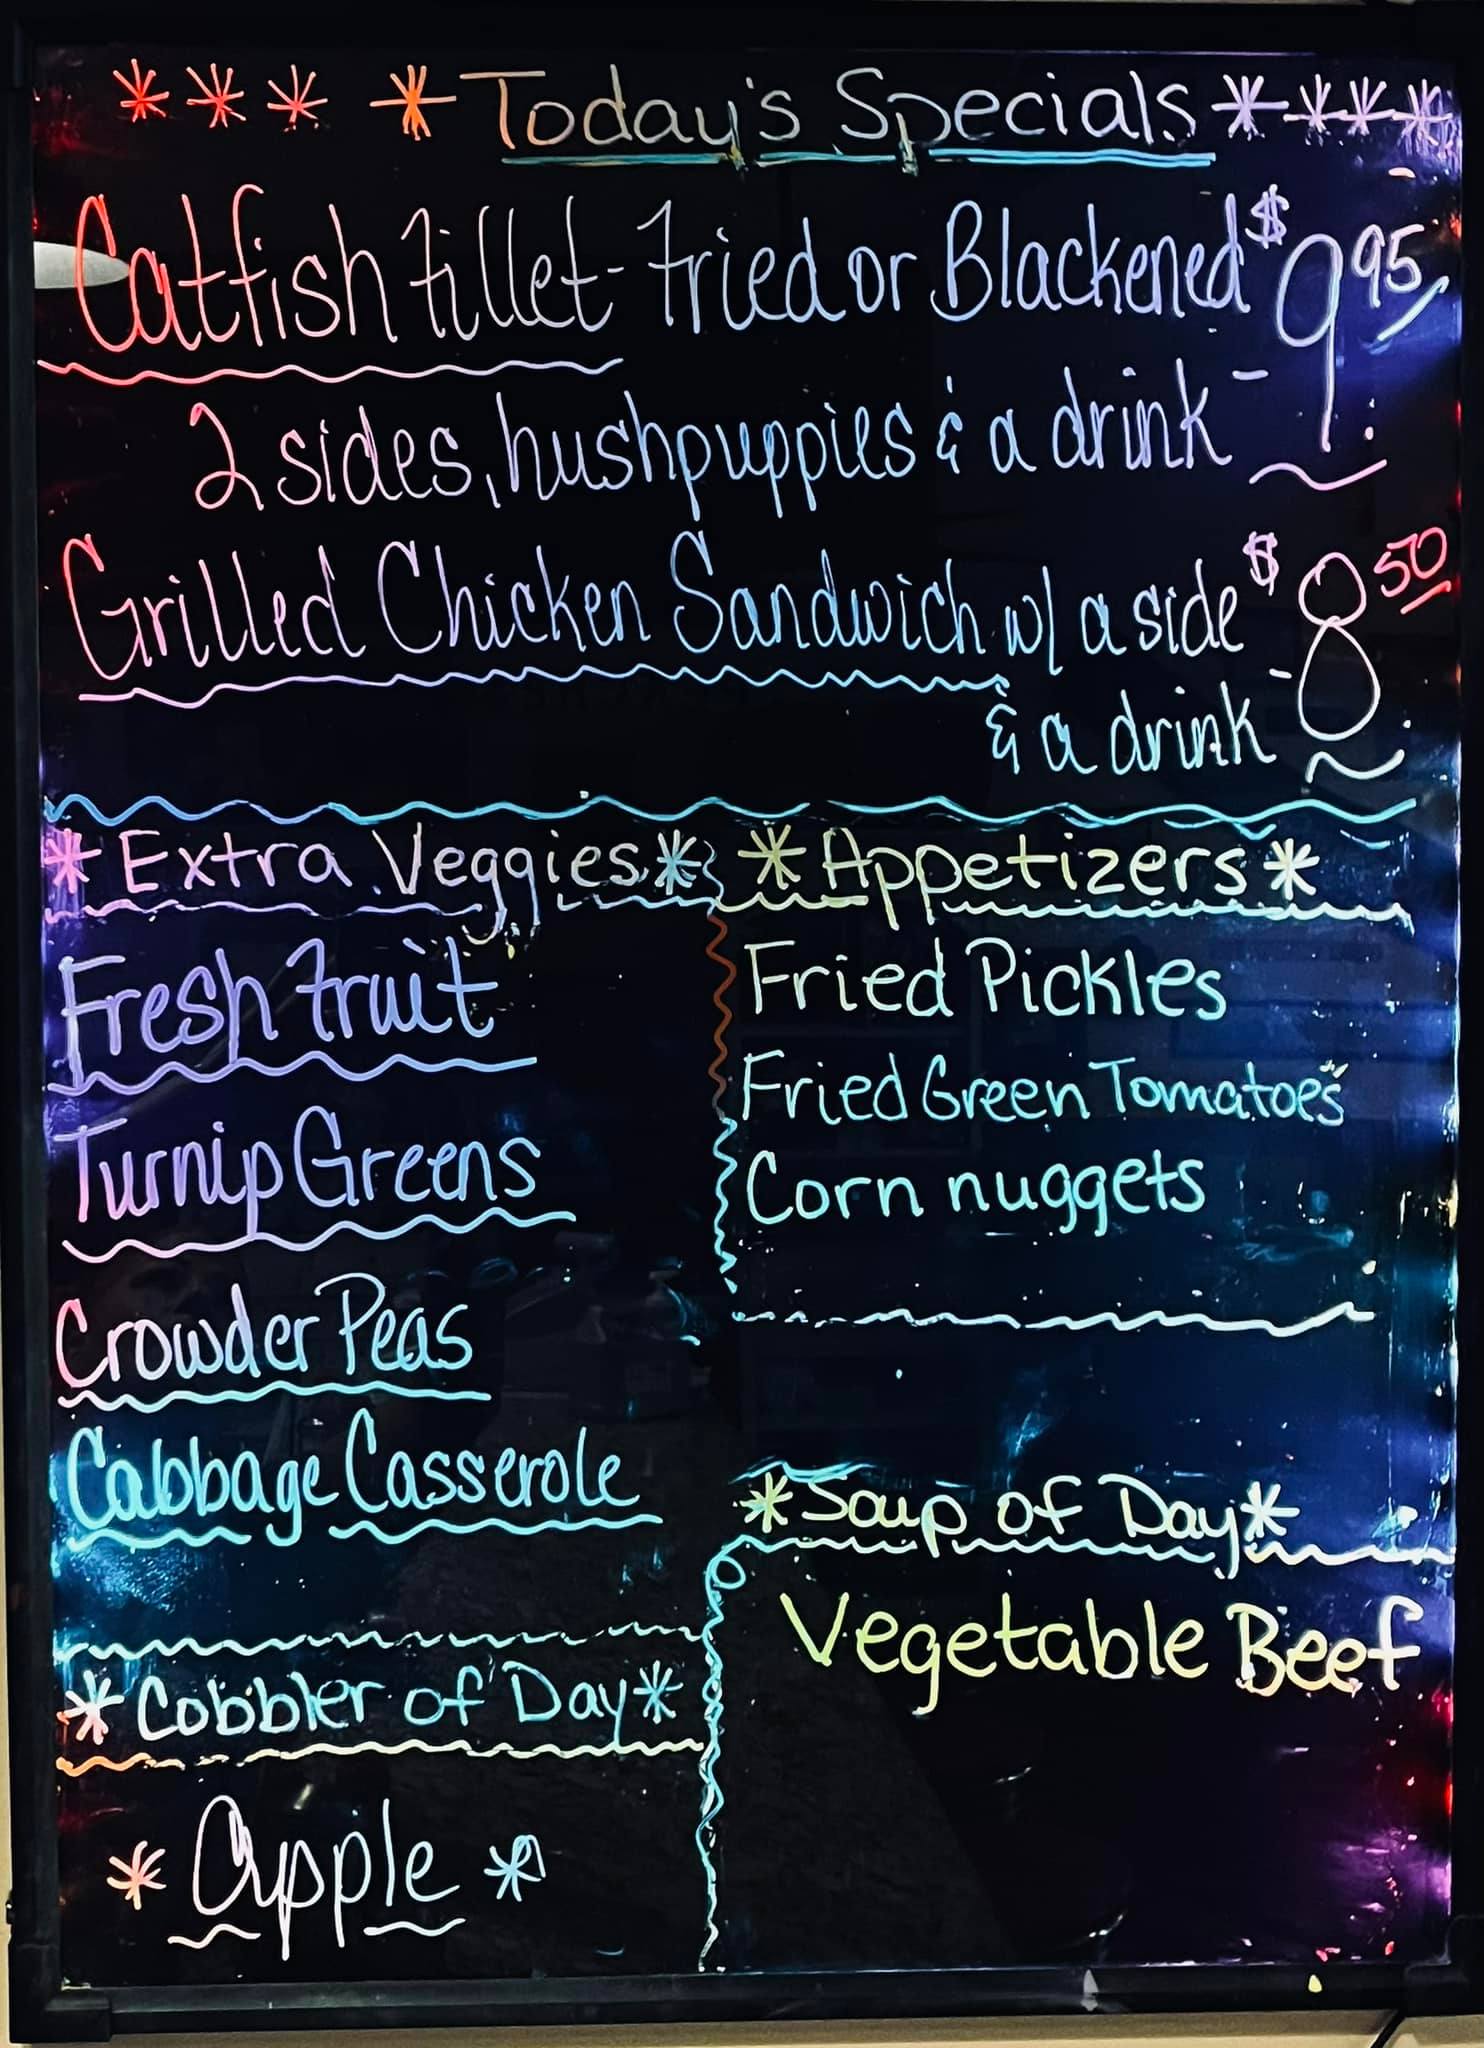 *** * Today's Specials ****
Catfish Fillet - Fried or Blackened $9.95
2 sides, hushpuppies & a drink -
Grilled Chicken Sandwich w/ a side $8.50
& a drink -
*Extra Veggies*
Fresh Fruit
Turnip Greens
Crowder Peas
Cabbage Casserole
*Cobbler of Day*
* Apple *
*Appetizers*
Fried Pickles
Fried Green Tomatoes
Corn nuggets
*Soup of Day*
Vegetable Beef